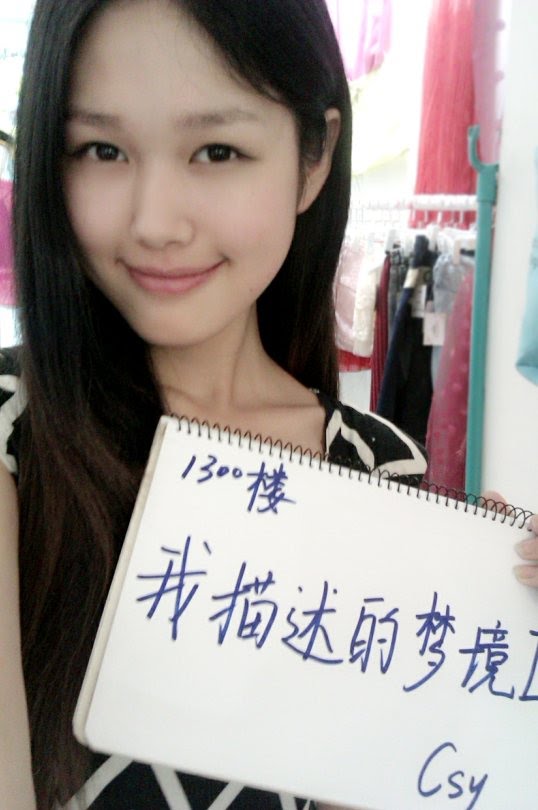 1300楼
我描述的梦境
Csy